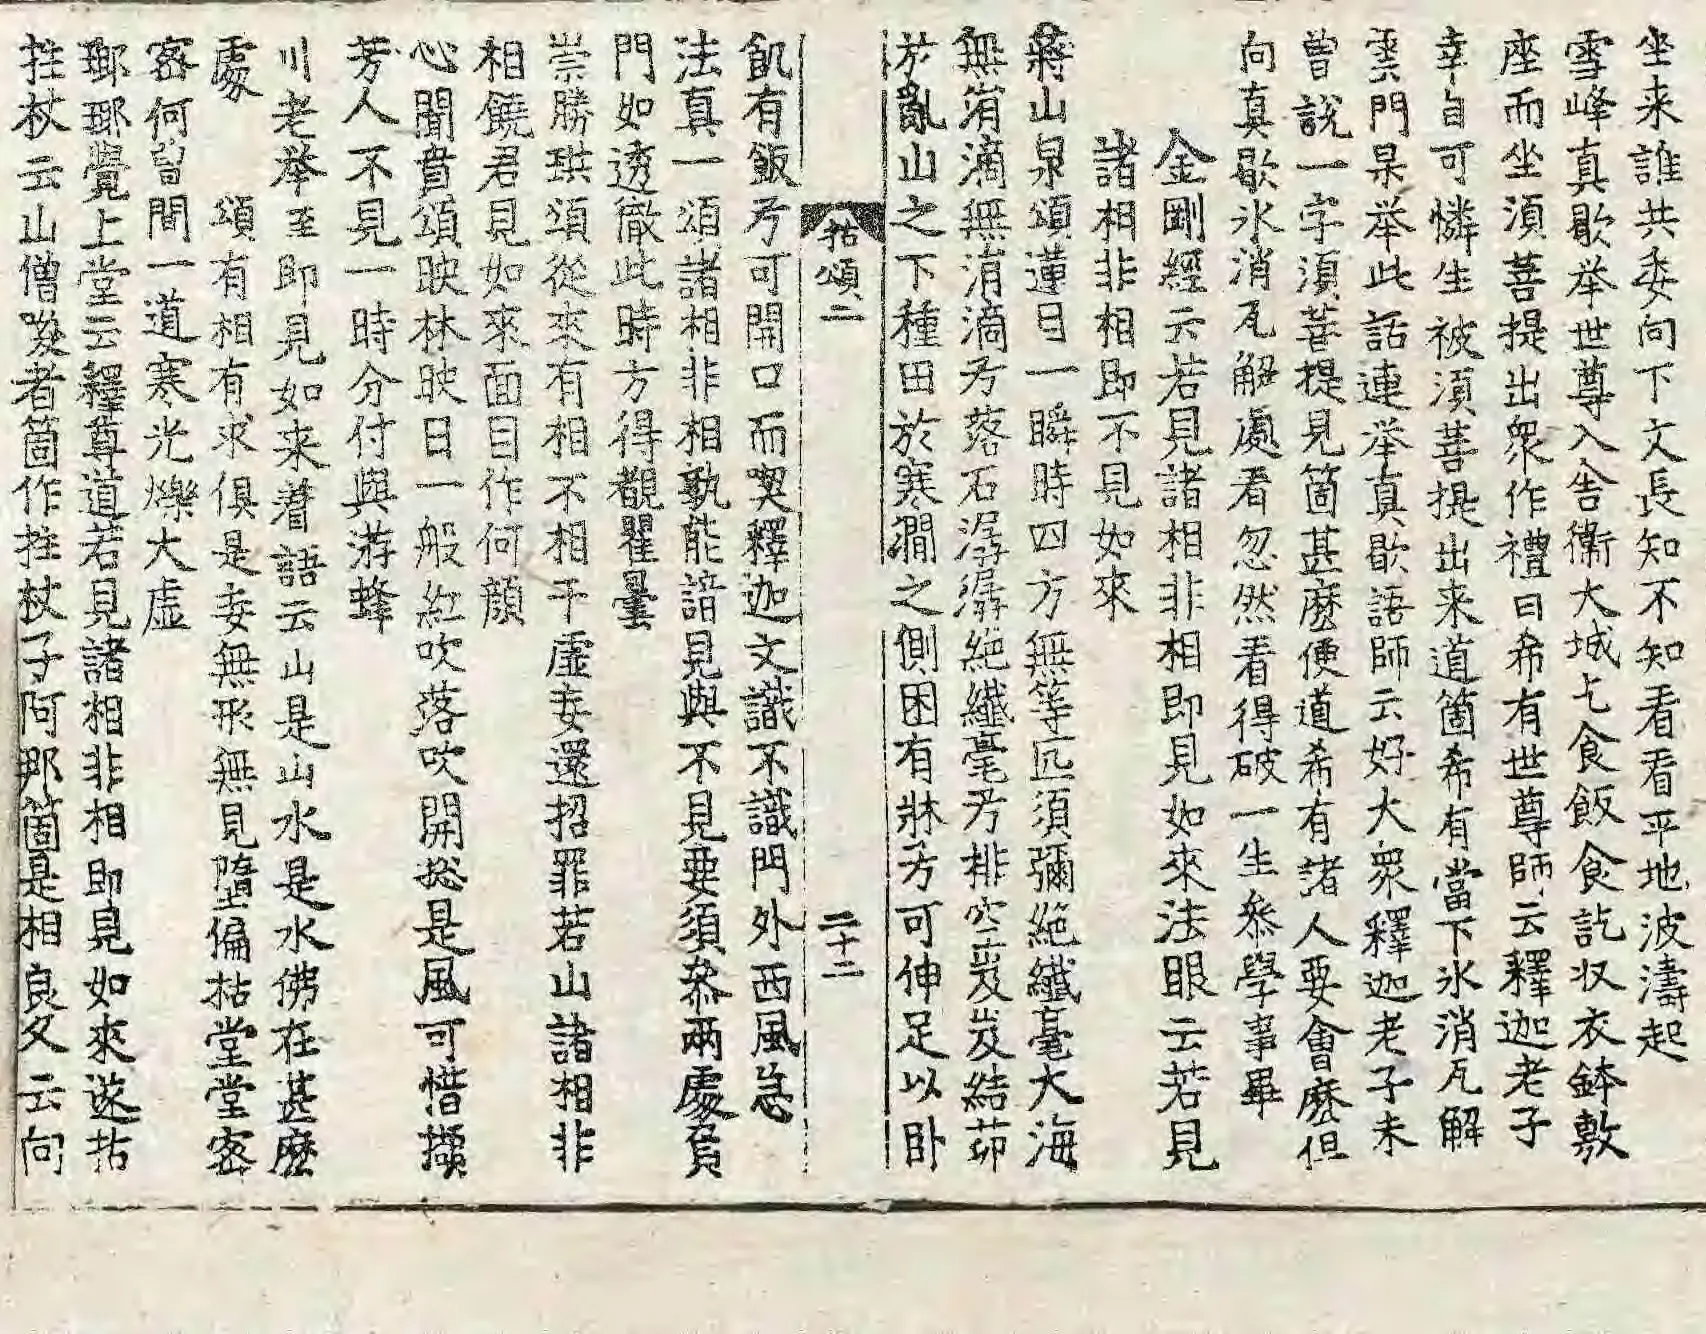 坐来誰共委向下文長知不知看看平地波濤起
雪峰真歇举世尊入舍衞大城乞食飯食訖収衣鉢敷
座而坐湏菩提出衆作禮曰希有世尊師云釋迦老子
幸自可憐生被湏菩提出来道箇希有當下氷消瓦解
雲門杲举此話連举真歇語師云好大衆釋迦老子未
曾說一字湏菩提見箇甚麽便道希有諸人要會麽但
向真歇氷消瓦解處看忽然看得破一生叅學事畢
金剛經云若見諸相非相即見如來法眼云若見
諸相非相即不見如來
蔣山泉頌蓮目一瞬時四方無等匹須彌絶纎毫大海
無涓滴無涓滴兮落石潺潺絶纎毫兮排空岌岌結茆
於亂山之下種田於寒澗之側困有牀兮可伸足以卧
拈頌二 二十二
飢有飯兮可開口而喫釋迦文識不識門外西風急
法真一頌諸相非相孰能諳見與不見要須叅兩處負
門如透徹此時方得覩瞿曇
崇勝珙頌從來有相不相干虛妄還招罪若山諸相非
相饒君見如來面目作何顔
心聞賁頌映林映日一般紅吹落吹開捴是風可惜擷
芳人不見一時分付與游蜂
川老举至即見如来着語云山是山水是水佛在甚麽
處 頌有相有求俱是妄無形無見墮偏枯堂堂密
密何曾間一道寒光爍大虛
瑯瑘覺上堂云釋尊道若見諸相非相即見如來遂拈
拄杖云山僧喚者箇作拄杖子阿那箇是相良久云向